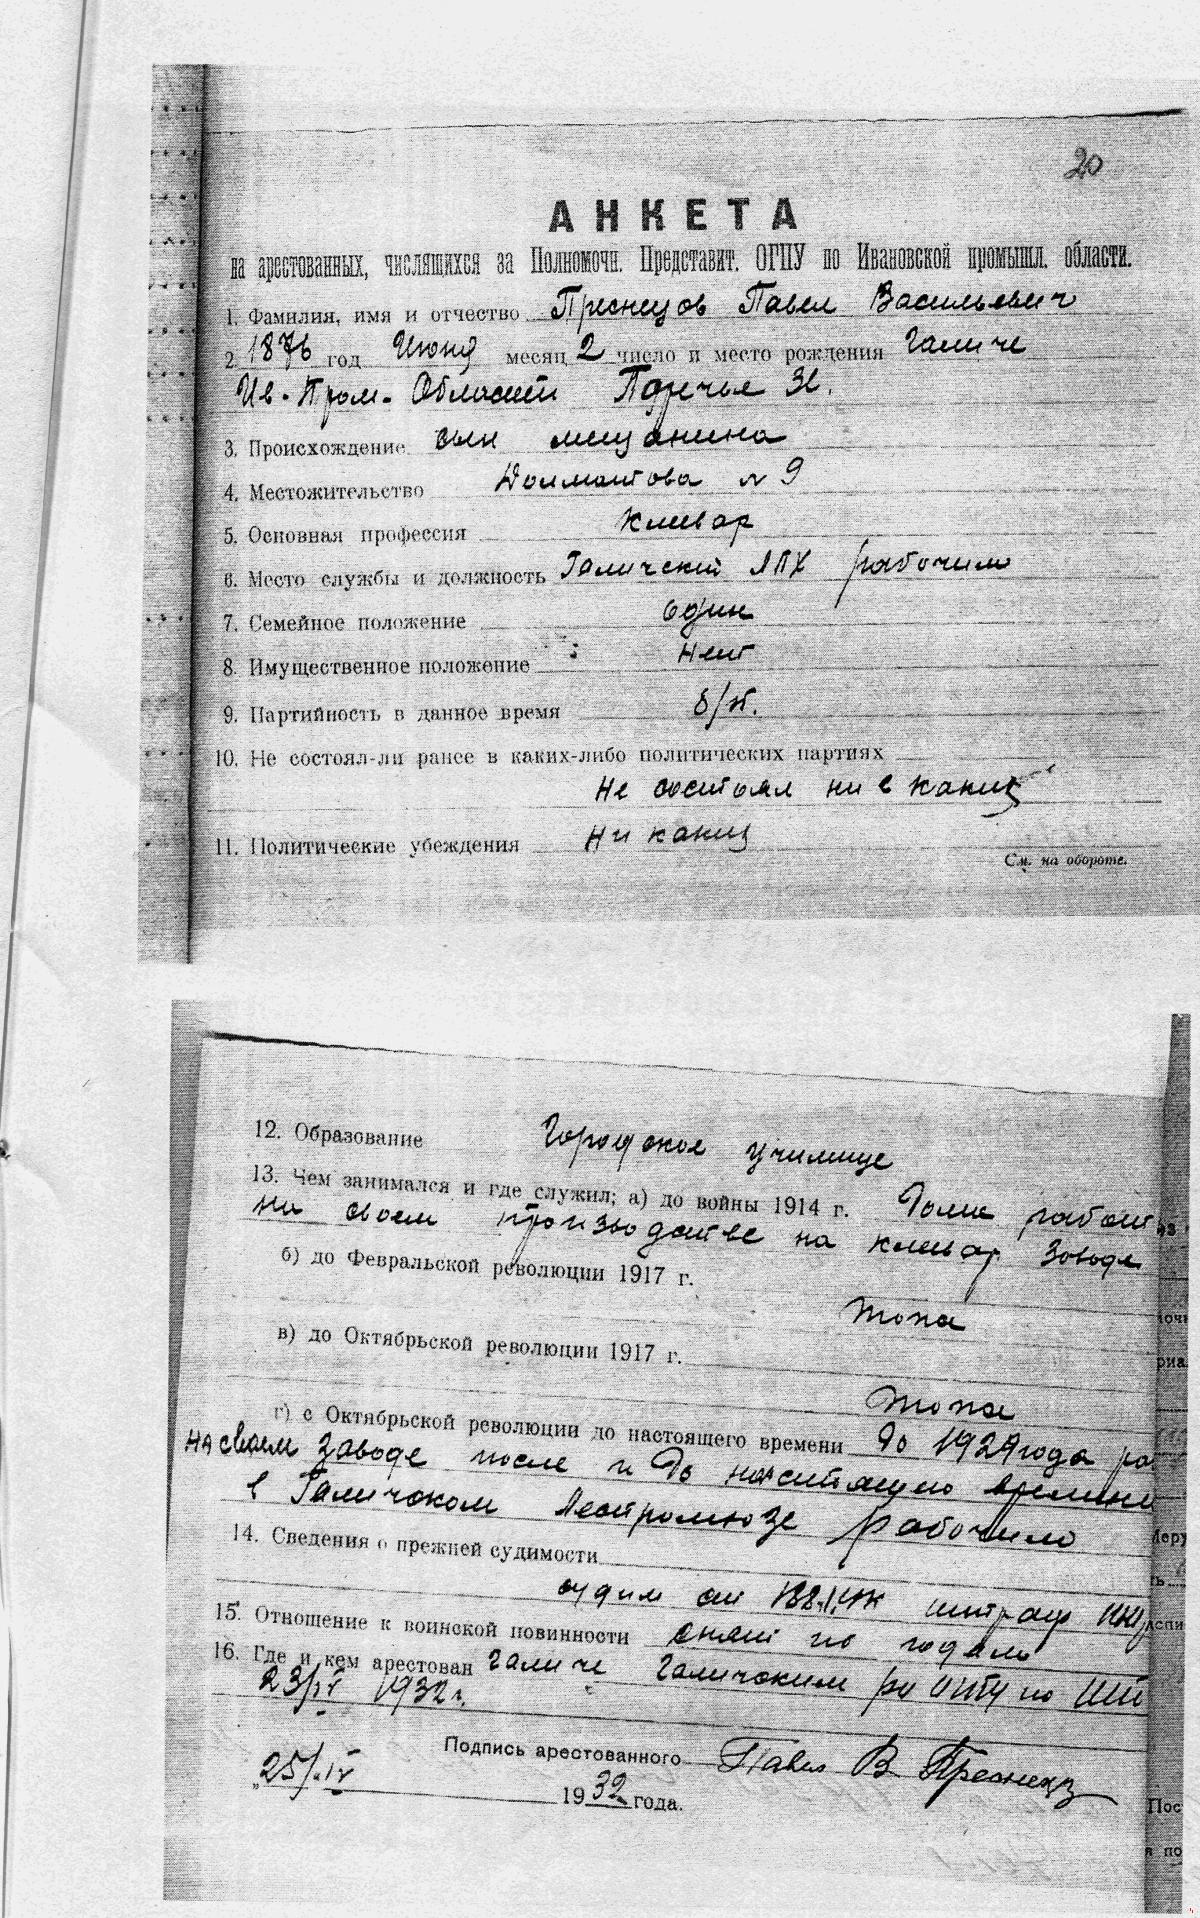 20
АНКЕТА
на арестованных, числящихся за Полномочн. Представит. ОГПУ по Ивановской промышл. области.
1. Фамилия, имя и отчество Преснецов Павел Васильевич
2. 1876 год Июня месяц 2 число и место рождения Галиче
Ив. Пром. Области Поречье 31.
3. Происхождение сын мещанина
4. Местожительство Долматова № 9
5. Основная профессия Клеевар
6. Место службы и должность Галический ЛПХ рабочим
7. Семейное положение один
8. Имущественное положение Нет
9. Партийность в данное время б/п.
10. Не состоял-ли ранее в каких-либо политических партиях
Не состоял ни в каких
11. Политические убеждения Ни каких
См. на обороте.
12. Образование Городское училище
13. Чем занимался и где служил: а) до войны 1914 г. Тоже работ
на своем производстве на клеевар. заводе
б) до Февральской революции 1917 г.
тоже
в) до Октябрьской революции 1917 г.
тоже
г) с Октябрьской революции до настоящего времени До 1929 года ра
на своем заводе после и до настоящего времени
в Галичском Леспромхозе рабочим
14. Сведения о прежней судимости
судим штраф
15. Отношение к воинской повинности снят по годам
16. Где и кем арестован Галиче Галичским ро ОГПУ по ИПО
23/IV 1932 г.
Подпись арестованного Павел В Преснецов
„25/IV 1932 года.
Пос
я по